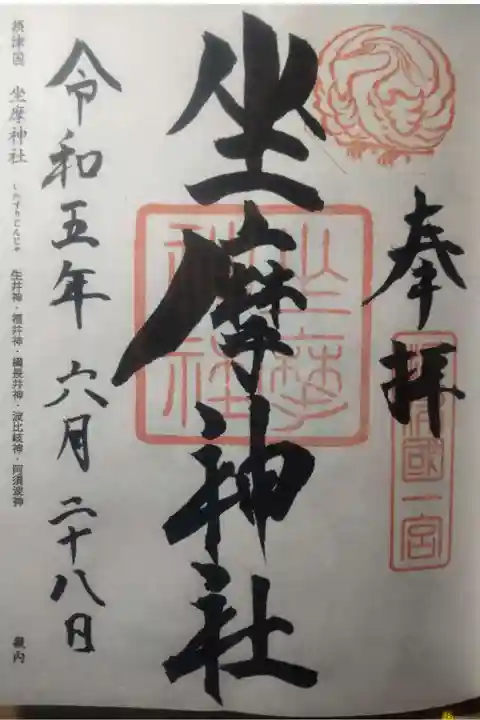 奉拝
摂津國一宮
坐摩神社
坐摩神社
令和五年 六月 二十八日
摂津国 坐摩神社 いかすりじんじゃ 生井神・福井神・綱長井神・波比岐神・阿須波神